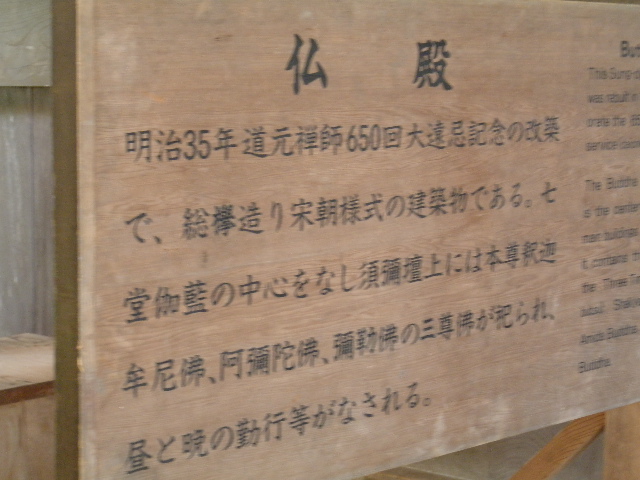 仏殿
明治35年道元禅師650回大遠忌記念の改築
で、総欅造り宋朝様式の建築物である。七
堂伽藍の中心をなし須彌壇上には本尊釈迦
牟尼佛、阿彌陀佛、彌勒佛の三尊佛が祀られ、
昼と晩の勤行等がなされる。
This Sung-
was rebuilt in
the 
service
The Buddha
is the center
main buildings
it contains th
the Three
Amida Buddha
Buddha.